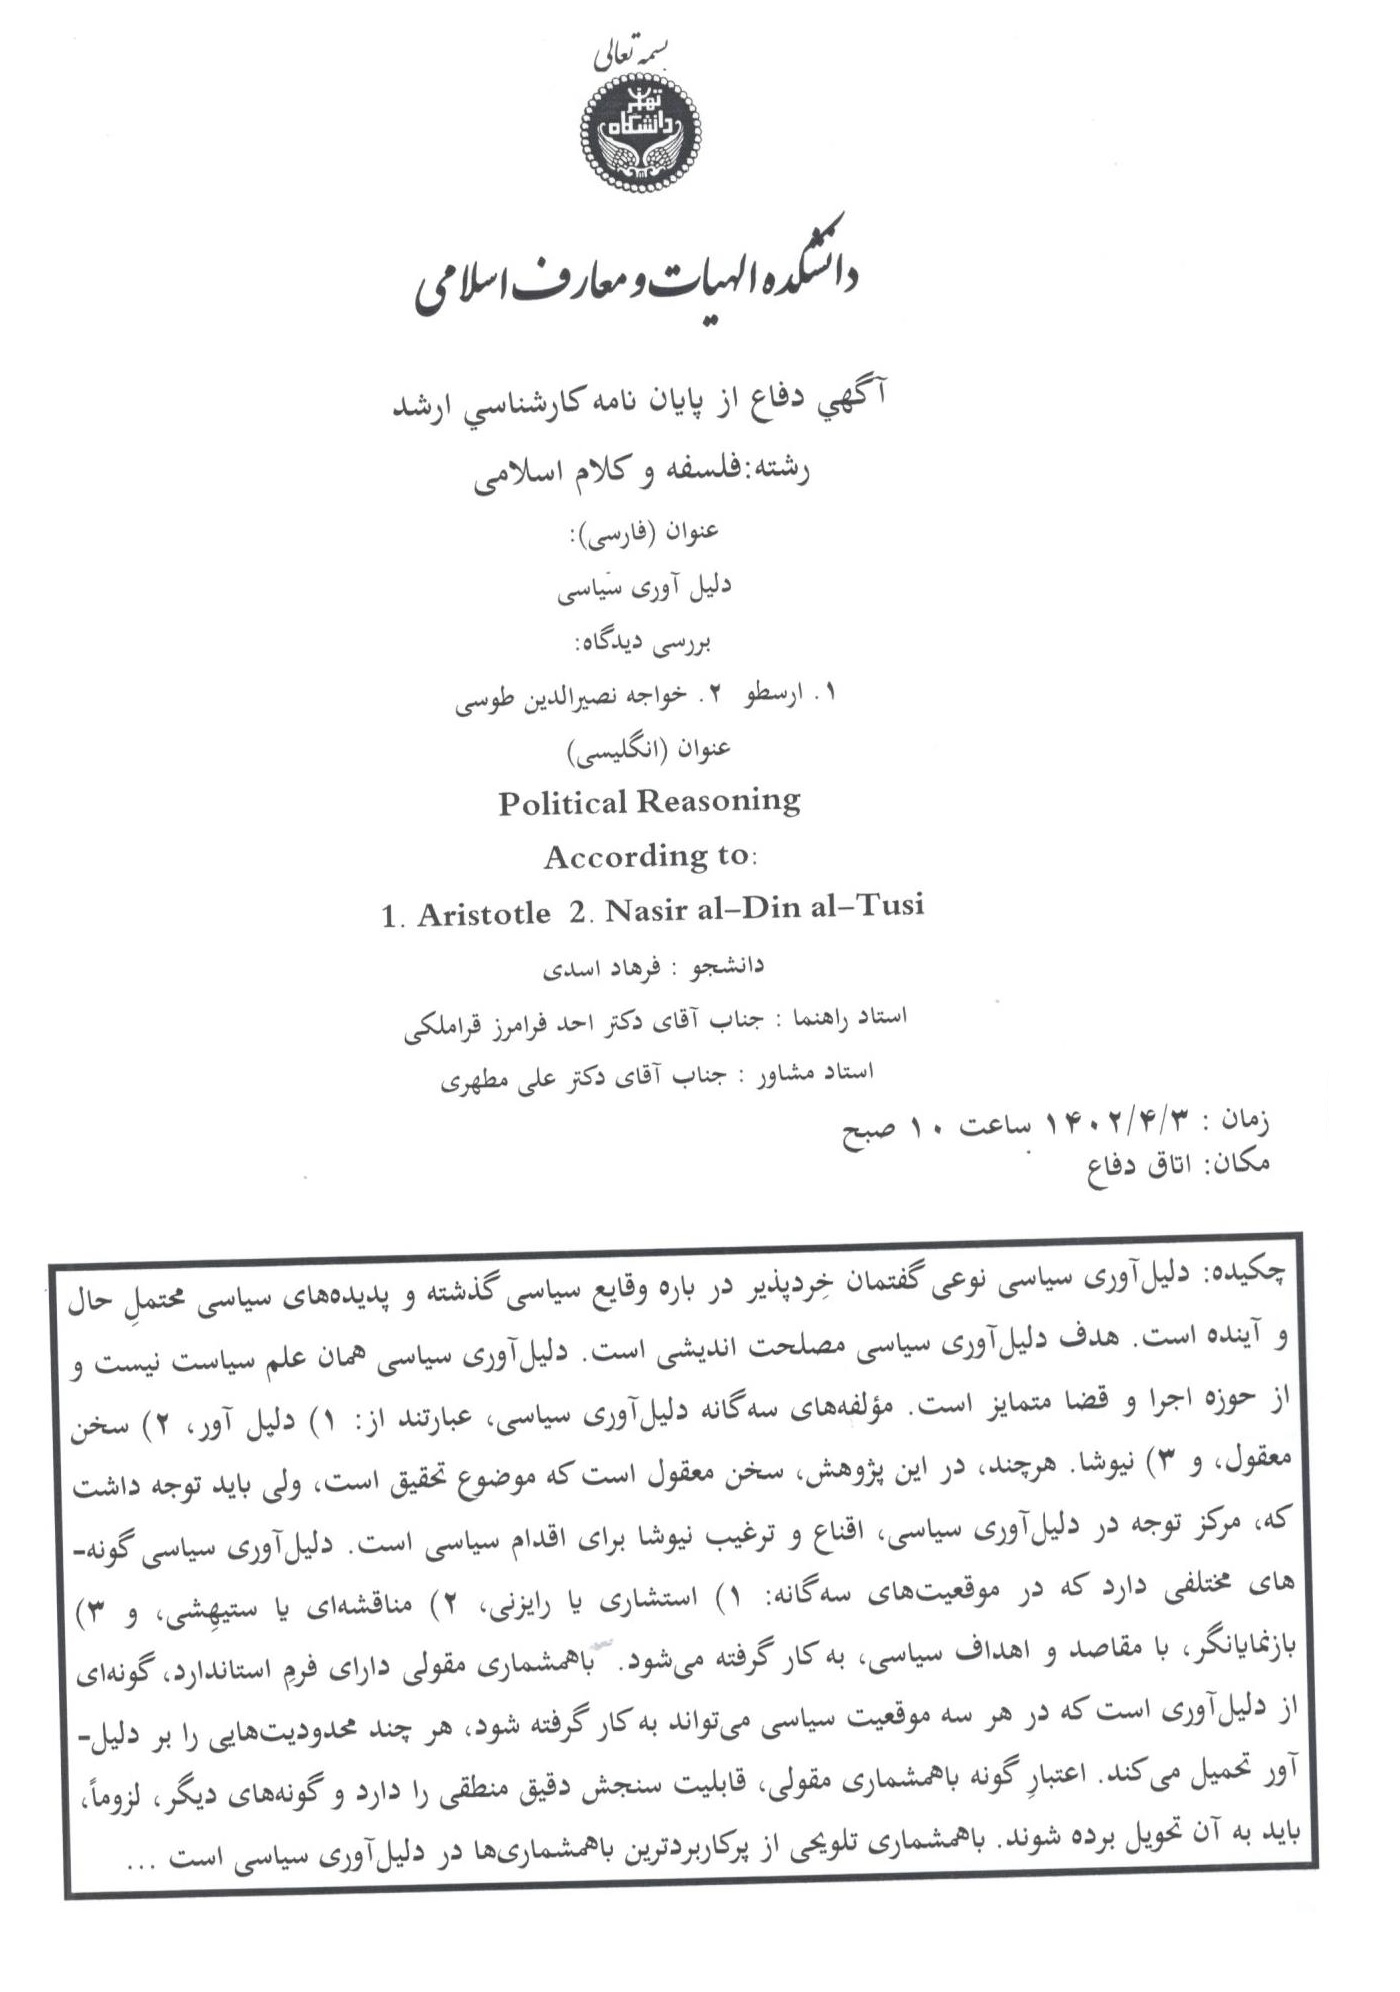 بسمه تعالی
دانشگاه تهران
دانشکده الهیات و معارف اسلامی
آگهي دفاع از پایان نامه کارشناسي ارشد
رشته:فلسفه و کلام اسلامی
عنوان (فارسی):
دلیل آوری سیاسی
بررسی دیدگاه:
۱. ارسطو ۲. خواجه نصیرالدین طوسی
عنوان (انگلیسی)
Political Reasoning
According to:
1. Aristotle 2. Nasir al-Din al-Tusi
دانشجو : فرهاد اسدی
استاد راهنما : جناب آقای دکتر احد فرامرز قراملکی
استاد مشاور : جناب آقای دکتر علی مطهری
زمان : ۱۴۰۲/۴/۳ ساعت ۱۰ صبح
مکان: اتاق دفاع
چکیده: دلیل‌آوری سیاسی نوعی گفتمان خِردپذیر در باره وقایع سیاسی گذشته و پدیده‌های سیاسی محتملِ حال
و آینده است. هدف دلیل‌آوری سیاسی مصلحت اندیشی است. دلیل‌آوری سیاسی همان علم سیاست نیست و
از حوزه اجرا و قضا متمایز است. مؤلفه‌های سه‌گانه دلیل‌آوری سیاسی، عبارتند از: ۱) دلیل آور، ۲) سخن
معقول، و ۳) نیوشا. هرچند، در این پژوهش، سخن معقول است که موضوع تحقیق است، ولی باید توجه داشت
که، مرکز توجه در دلیل‌آوری سیاسی، اقناع و ترغیب نیوشا برای اقدام سیاسی است. دلیل‌آوری سیاسی گونه-
های مختلفی دارد که در موقعیت‌های سه‌گانه: ۱) استشاری یا رایزنی، ۲) مناقشه‌ای یا ستیهِشی، و ۳)
بازنمایانگر، با مقاصد و اهداف سیاسی، به کار گرفته می‌شود. باهمشماری مقولی دارای فرمِ استاندارد، گونه‌ای
از دلیل‌آوری است که در هر سه موقعیت سیاسی می‌تواند به کار گرفته شود، هر چند محدودیت‌هایی را بر دلیل-
آور تحمیل می‌کند. اعتبارِ گونه باهمشماری مقولی، قابلیت سنجش دقیق منطقی را دارد و گونه‌های دیگر، لزوماً،
باید به آن تحویل برده شوند. باهمشماری تلویحی از پرکاربردترین باهمشماری‌ها در دلیل‌آوری سیاسی است ...